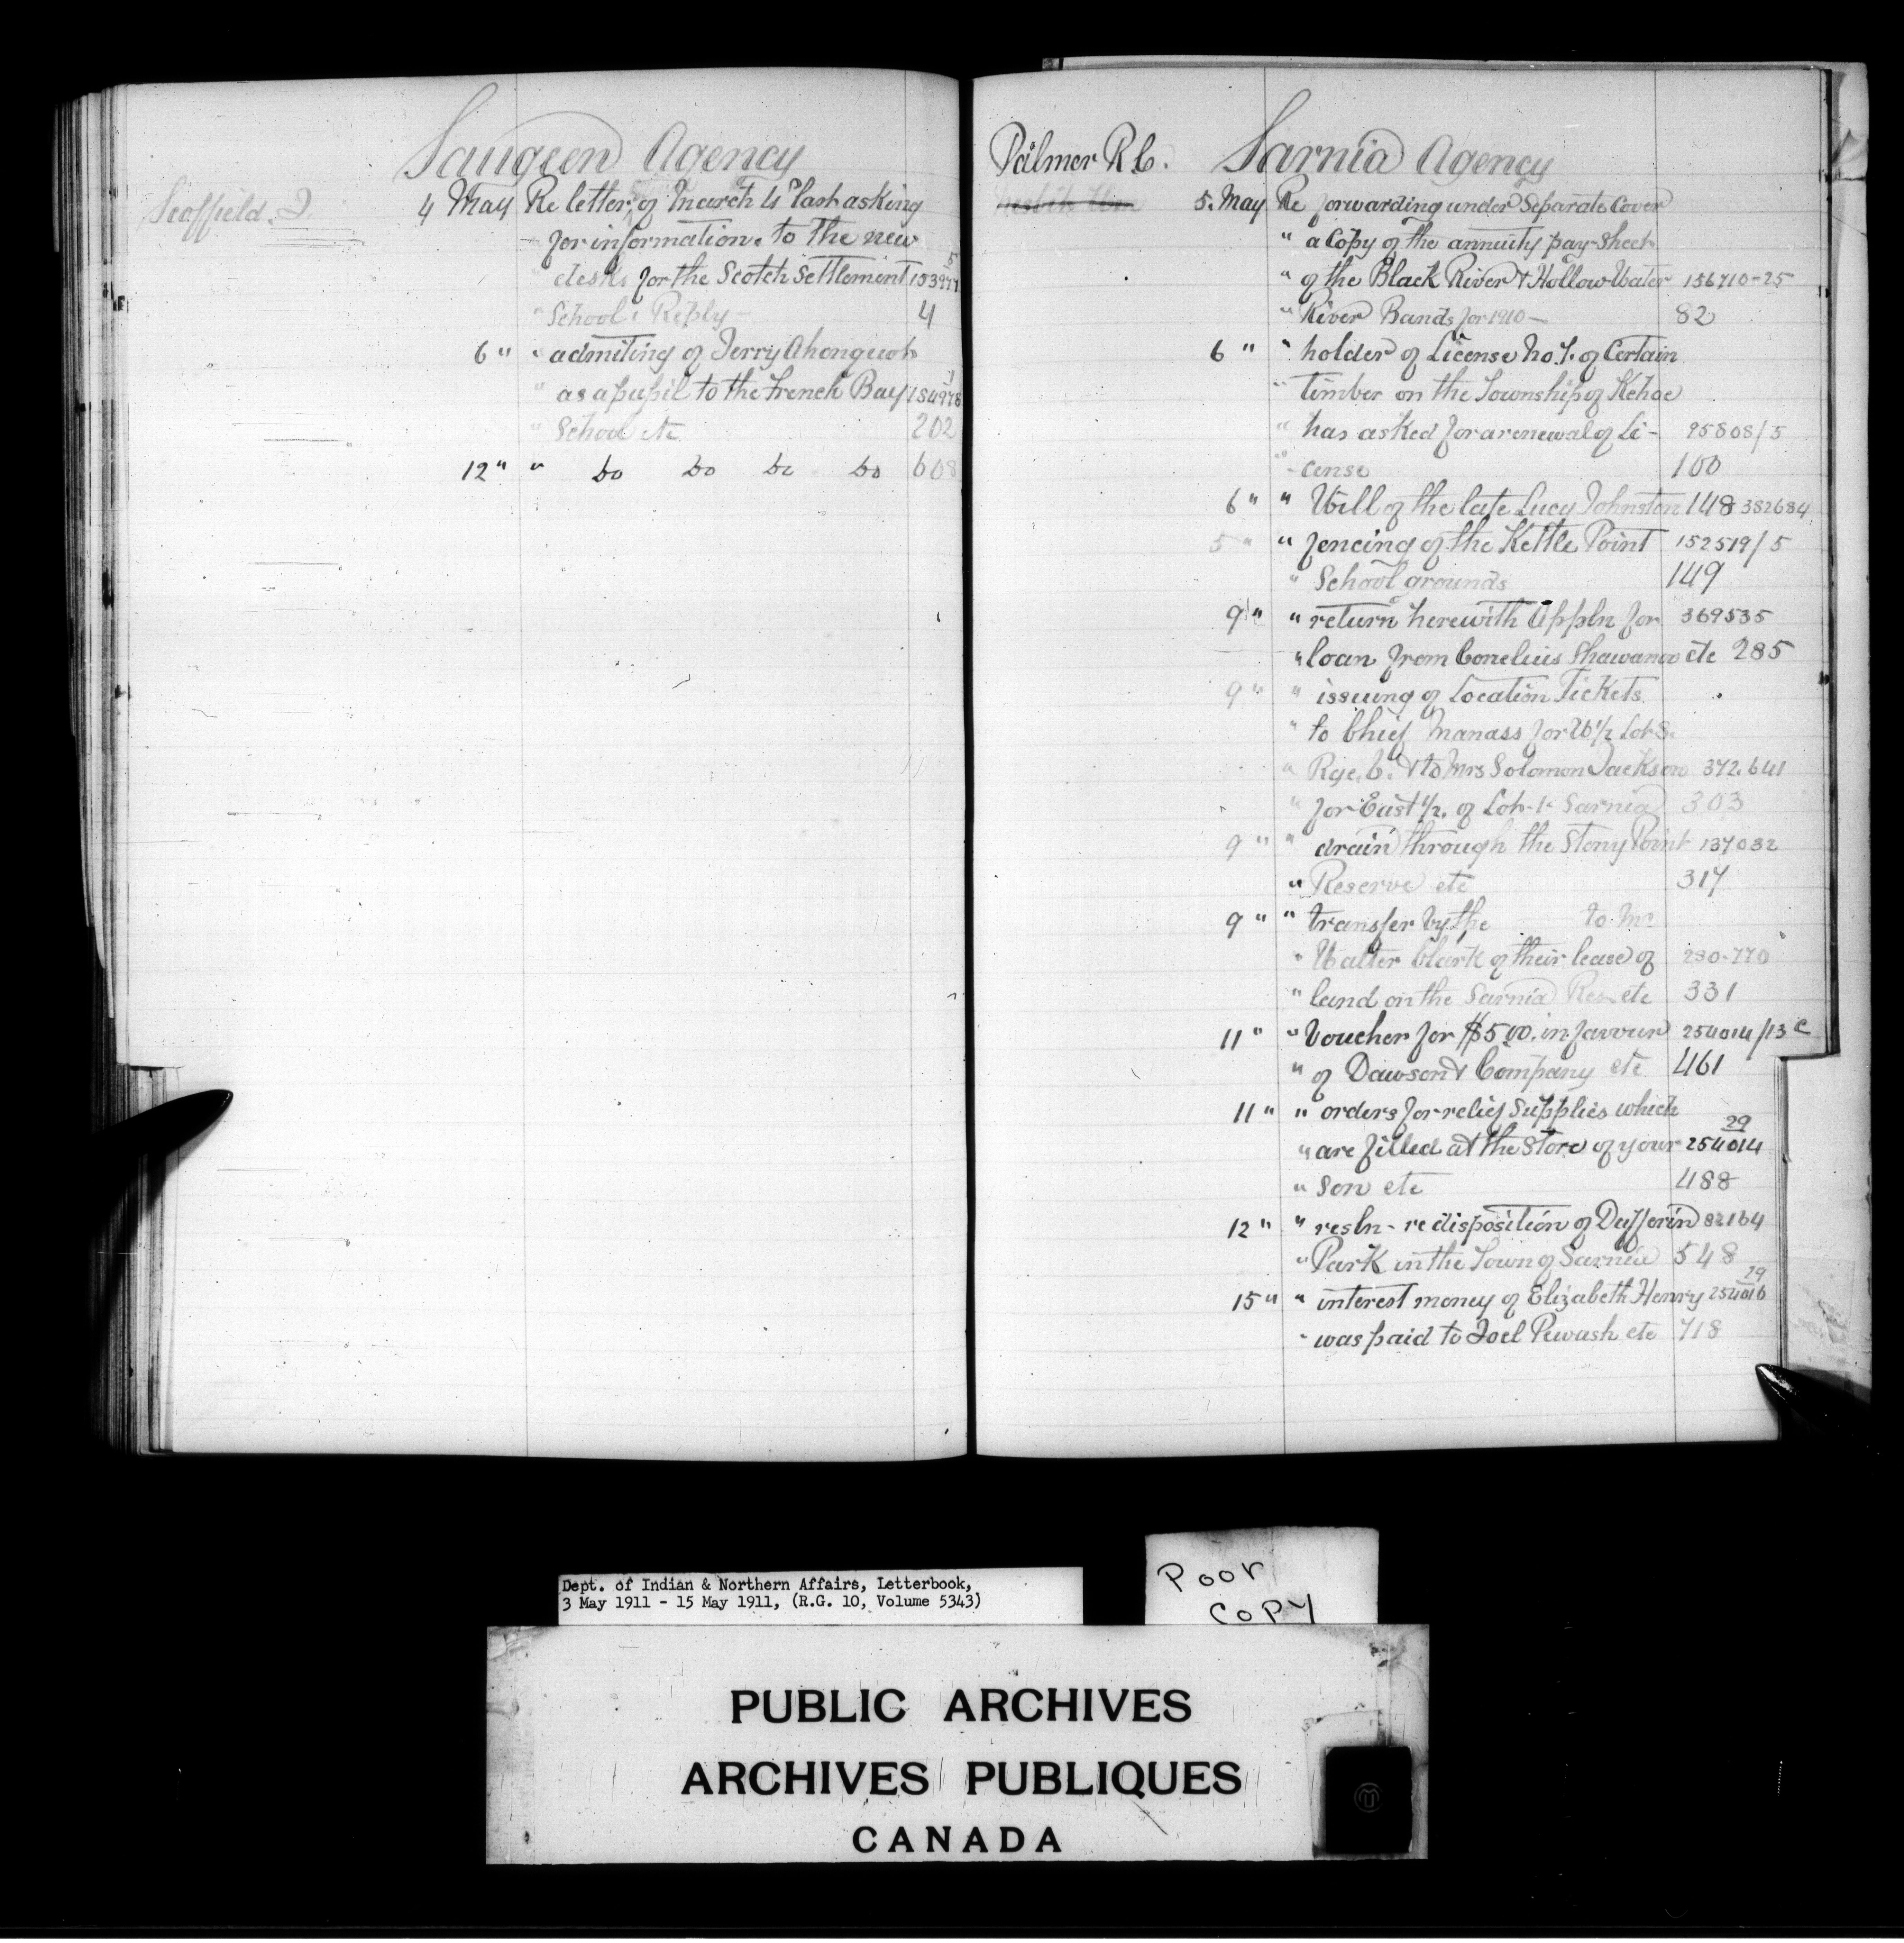 Saugeen Agency
Scoffield. J.
4 May Re letter of March 4th last asking
" for information. to the new
" desks for the Scotch Settlement 153977/5
" School. Reply - 4
6 " " admiting of Jerry Ahongwot
" as a pupil to the French Bay 184978/1
" School etc 202
12 " " Do Do Do Do 608
Palmer R.C. Sarnia Agency
5. May Re forwarding under Separate Cover
" a Copy of the annuity pay-Sheet
" of the Black River & Hollow Water 156710-25
" River Bands for 1910- 82
6 " " holder of License No. 1. of Certain
" timber on the Township of Kehoe
" has asked for a renewal of Li- 95808/5
" -cense 100
6 " " Will of the late Lucy Johnston 148 382684
5 " " fencing of the Kettle Point 152519/5
" School grounds 149
9 " " return herewith Appln for 369535
" loan from Cornelius Shawanoo etc 285
9 " " issuing of Location Tickets
" to Chief Manass for W 1/2 Lot 8.
" Rge. C. & to Mrs Solomon Jackson 372.641
" for East 1/2. of Lot-1- Sarnia 303
9 " " drain through the Stony Point 137032
" Reserve etc 317
9 " " transfer by the to Mr
" Walter Clark of their lease of 230-770
" land on the Sarnia Res etc 331
11 " " Voucher for $5.00. in favour 254014/13 c
" of Dawson & Company etc 461
11 " " orders for relief Supplies which
" are filled at the Store of your 254014/29
" Son etc 488
12 " " resln- re disposition of Dufferin 82164
" Park in the Town of Sarnia 548
15 " " interest money of Elizabeth Henry 254016/29
" was paid to Joel Pewash etc 718
Dept. of Indian & Northern Affairs, Letterbook,
3 May 1911 - 15 May 1911, (R.G. 10, Volume 5343)
Poor
Copy
PUBLIC ARCHIVES
ARCHIVES PUBLIQUES
CANADA